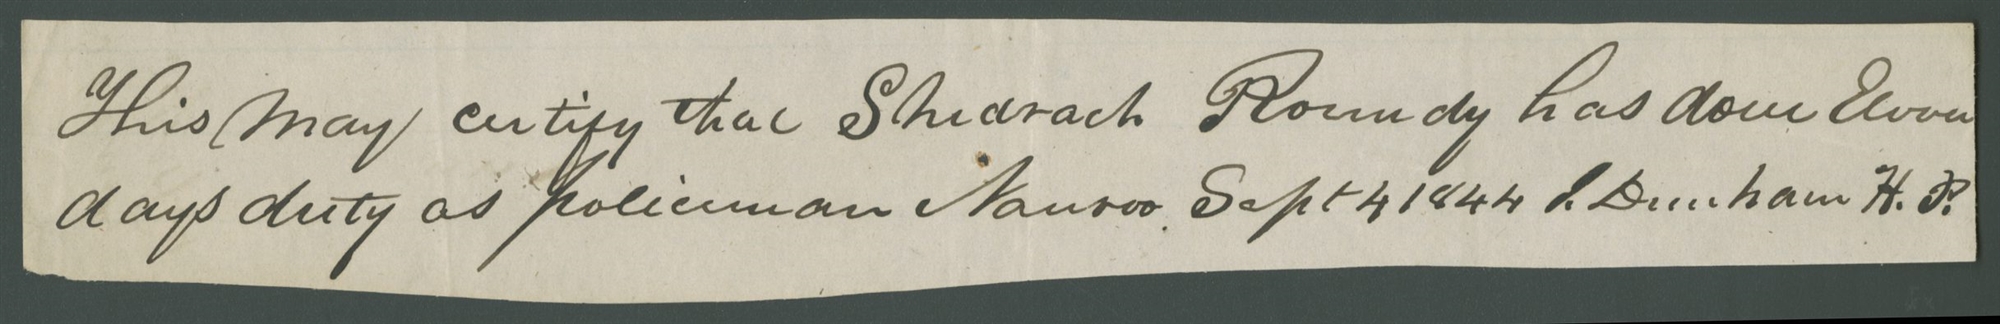 This may certify that Shadrach Roundy has done Eleven
days duty as policeman Nauvoo. Sept 4 1844 J. Dunham H. P.